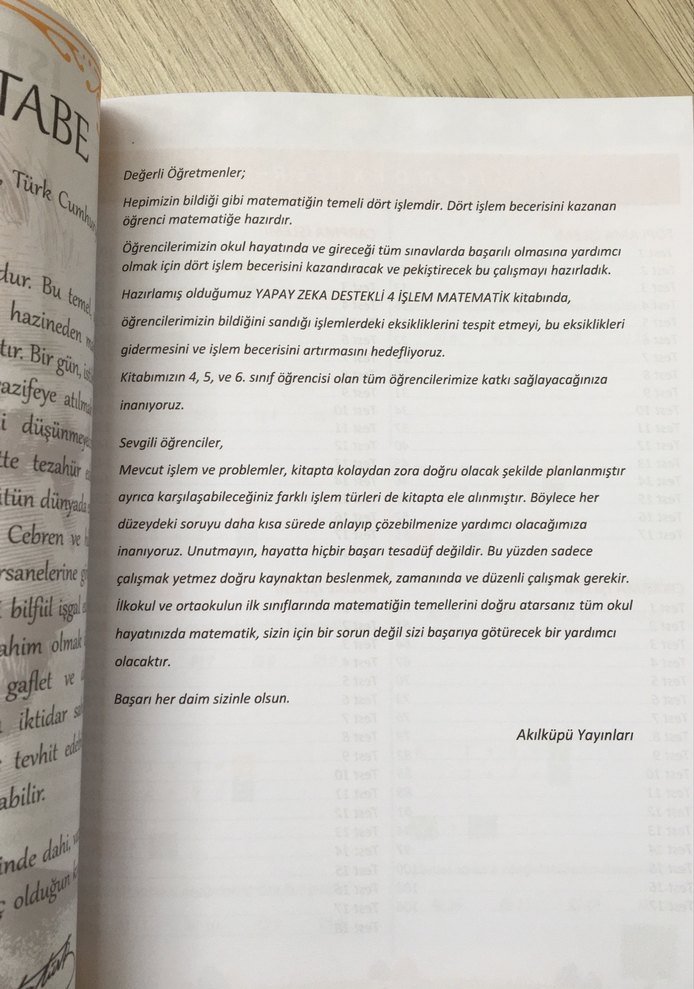 TABE
Türk Cumhur
dur. Bu temel
hazineden
tır. Bir gün,
vazifeye atılma
düşünmeye
te tezahür
ütün dünyada
Cebren ve
rsanelerine
bilfiil işgal
ahim olmak
gaflet ve
iktidar
tevhit edeb
abilir.
inde dahi,
olduğun
Değerli Öğretmenler;
Hepimizin bildiği gibi matematiğin temeli dört işlemdir. Dört işlem becerisini kazanan
öğrenci matematiğe hazırdır.
Öğrencilerimizin okul hayatında ve gireceği tüm sınavlarda başarılı olmasına yardımcı
olmak için dört işlem becerisini kazandıracak ve pekiştirecek bu çalışmayı hazırladık.
Hazırlamış olduğumuz YAPAY ZEKA DESTEKLİ 4 İŞLEM MATEMATİK kitabında,
öğrencilerimizin bildiğini sandığı işlemlerdeki eksikliklerini tespit etmeyi, bu eksiklikleri
gidermesini ve işlem becerisini artırmasını hedefliyoruz.
Kitabımızın 4, 5, ve 6. sınıf öğrencisi olan tüm öğrencilerimize katkı sağlayacağınıza
inanıyoruz.
Sevgili öğrenciler,
Mevcut işlem ve problemler, kitapta kolaydan zora doğru olacak şekilde planlanmıştır
ayrıca karşılaşabileceğiniz farklı işlem türleri de kitapta ele alınmıştır. Böylece her
düzeydeki soruyu daha kısa sürede anlayıp çözebilmenize yardımcı olacağımıza
inanıyoruz. Unutmayın, hayatta hiçbir başarı tesadüf değildir. Bu yüzden sadece
çalışmak yetmez doğru kaynaktan beslenmek, zamanında ve düzenli çalışmak gerekir.
İlkokul ve ortaokulun ilk sınıflarında matematiğin temellerini doğru atarsanız tüm okul
hayatınızda matematik, sizin için bir sorun değil sizi başarıya götürecek bir yardımcı
olacaktır.
Başarı her daim sizinle olsun.
Akılküpü Yayınları